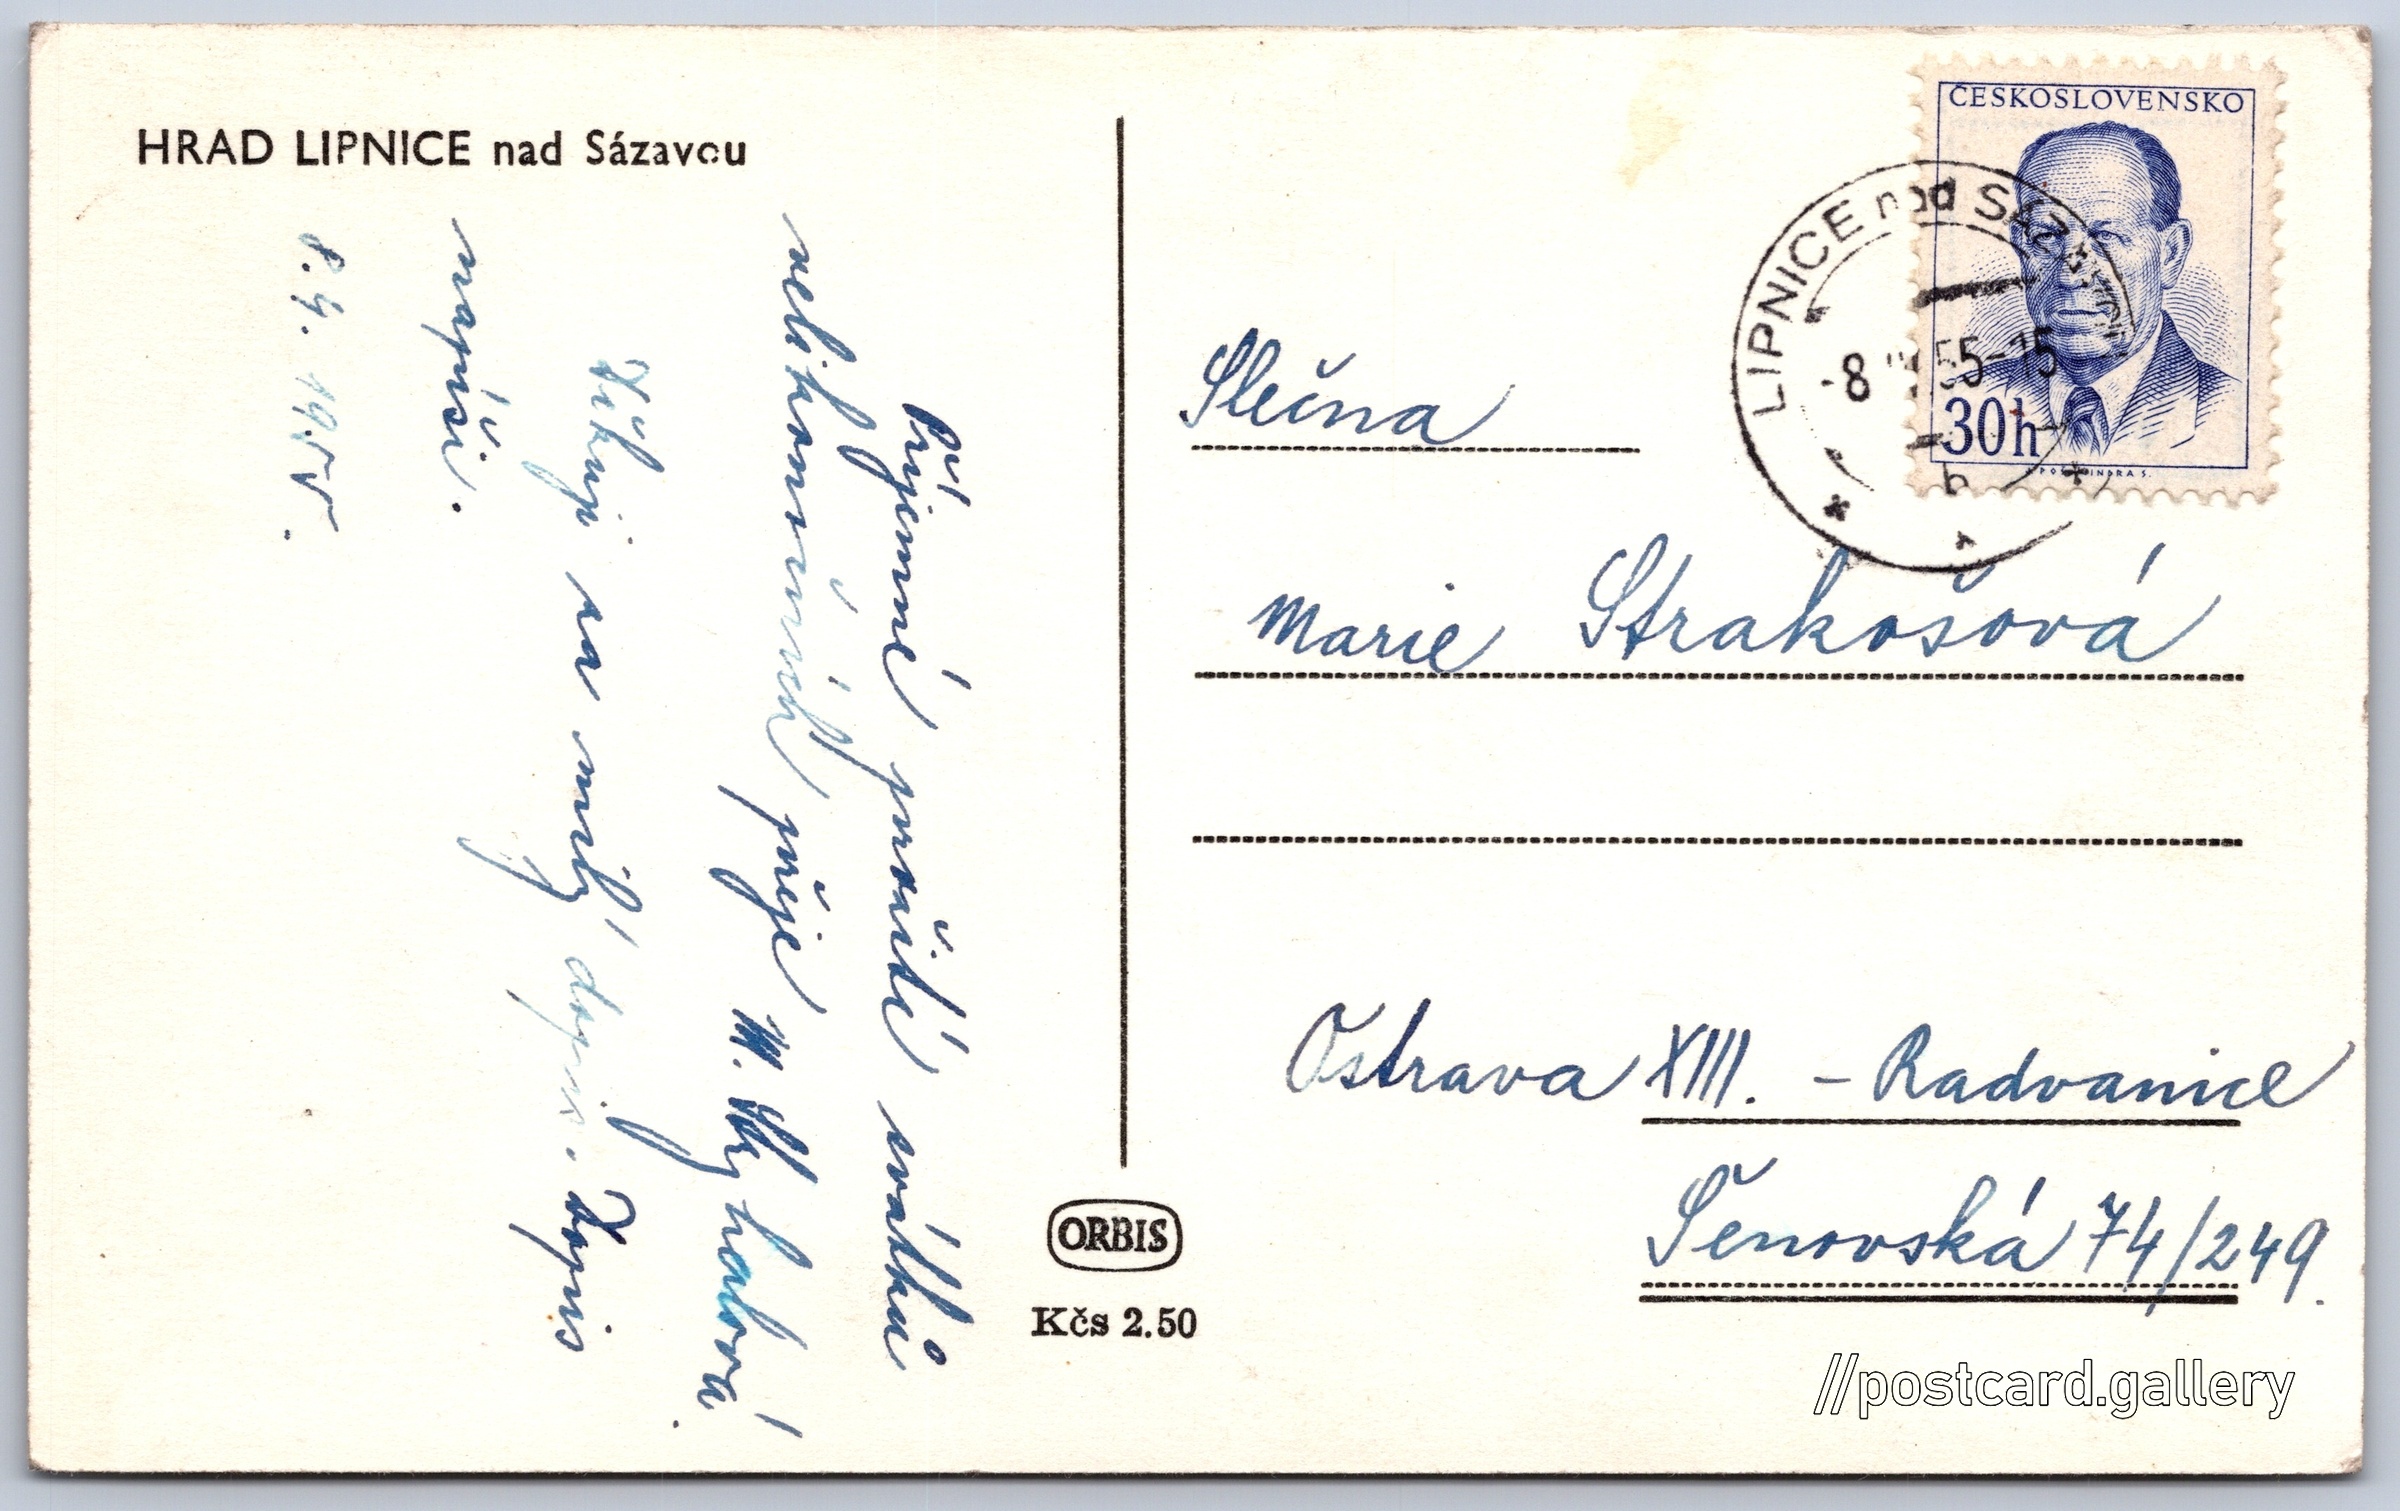 HRAD LIPNICE nad Sázavou
Příjemné prožití svátků
velikonočních přeje M.
Děkuji za milý dopis. Dopis
napíši.
8.4. 1955.
ČESKOSLOVENSKO
30h
LIPNICE nad SÁZAVOU
-8 55-15
b
Slečna
Marie Strakošová
Ostrava XIII. - Radvanice
Šenovská 74/249.
ORBIS
Kčs 2.50
//postcard.gallery